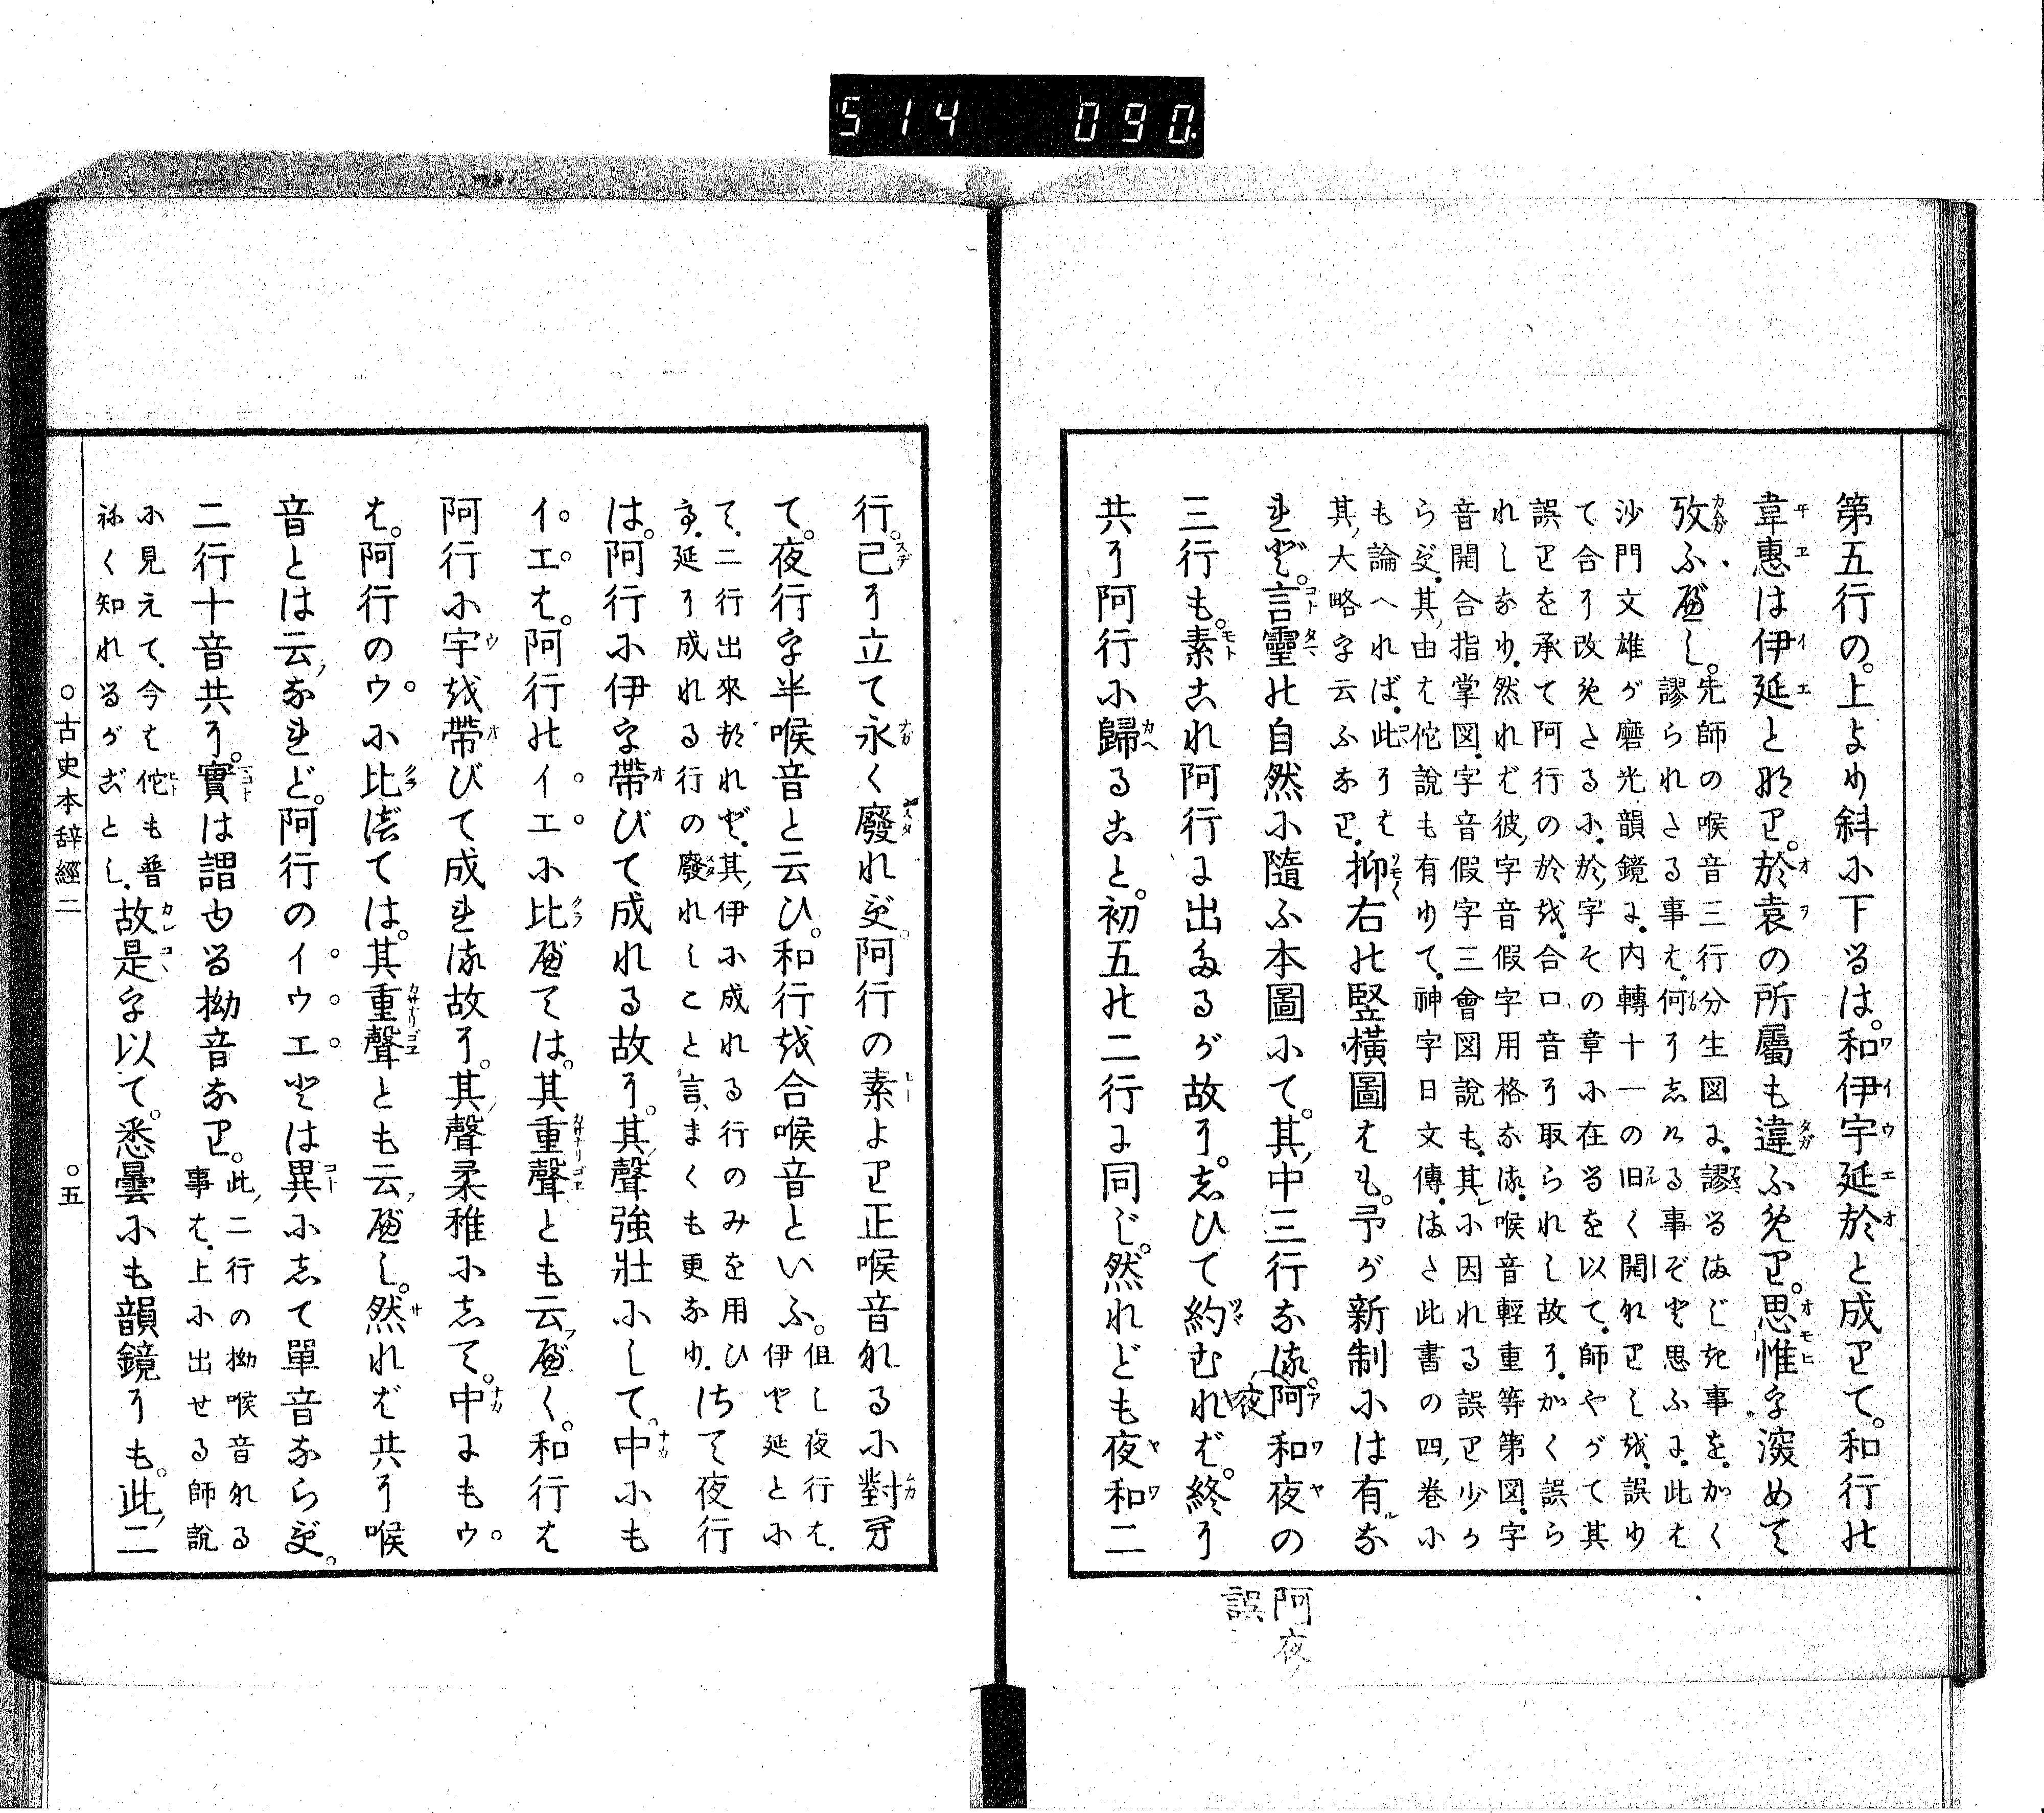 514 090.
第五行の。上より斜に下るは。和伊宇延於と成りて。和行の
韋惠は伊延と成り。於袁の所屬も違ふめり。思惟を深めて
攷ふべし。
先師の喉音三行分生図に。謬るまじき事を。かく
謬られさる事は。何にしれる事ぞと思ふに。此は
沙門文雄が磨光韻鏡に。内轉十一の旧く開なりしを。誤り
て合に改めたるに。於字その章に在るを以て。師やがて其
誤りを承て阿行の於を。合口音に取られし故に。かく誤ら
れしなり。然れば彼字音假字用格なる。喉音輕重等第図。字
音開合指掌図。字音假字三會図説も。其に因れる誤り少か
らず。其由は佗説も有りて。神字日文傳。また此書の四巻に
も論へれば。此には
其大略を云ふなり。
抑右の竪横圖はも。予が新制には有な
れど。言靈の自然に隨ふ本圖にて。其中三行なる。阿和夜の
夜
三行も。素これ阿行に出たるが故に。しひて約むれば。終に
共に阿行に歸ること。初五の二行に同じ。然れども夜和二
阿夜
誤
行。已に立て永く廢れず。阿行の素より正喉音なるに對へ
て。夜行を半喉音と云ひ。和行を合喉音といふ。
但し夜行は。
伊と延とに
て。二行出來たれど。其伊に成れる行のみを用ひ
て。延に成れる行の廢れしこと言まくも更なり。
さて夜行
は。阿行に伊を帶びて成れる故に。其聲強壯にして。中にも
イ。エは。阿行のイエに比べては。其重聲とも云べく。和行は
阿行に宇を帶びて成れる故に。其聲柔稚にして。中にもウ
は。阿行のウに比べては。其重聲とも云べし。然れば共に喉
音とは云なれど。阿行のイウエとは異にして單音ならず。
二行十音共に。實は謂ゆる拗音なり。
此二行の拗喉音なる
事は。上に出せる師説
に見えて。今は佗も普
ねく知れるがごとし。
故是を以て。悉曇にも韻鏡にも。此二
○古史本辞經二 ○五